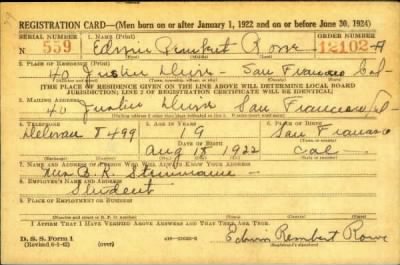 REGISTRATION CARD—(Men born on or after January 1, 1922 and on or before June 30, 1924)
SERIAL NUMBER 1. NAME (Print) ORDER NUMBER
N 559 Edwin Rembert Rowe 12102-A
2. PLACE OF RESIDENCE (Print)
40 Justin Drive - San Francisco Cal
[THE PLACE OF RESIDENCE GIVEN ON THE LINE ABOVE WILL DETERMINE LOCAL BOARD
JURISDICTION; LINE 2 OF REGISTRATION CERTIFICATE WILL BE IDENTICAL]
3. MAILING ADDRESS
40 Justin Drive San Francisco
4. TELEPHONE 5. AGE IN YEARS 6. PLACE OF BIRTH
Delevan 8499 19 San Francisco
DATE OF BIRTH
Aug 18 1922 Cal
7. NAME AND ADDRESS OF PERSON WHO WILL ALWAYS KNOW YOUR ADDRESS
Mrs B. R.
8. EMPLOYER'S NAME AND ADDRESS
Student
9. PLACE OF EMPLOYMENT OR BUSINESS
I AFFIRM THAT I HAVE VERIFIED ABOVE ANSWERS AND THAT THEY ARE TRUE.
D. S. S. Form 1 Edwin Rembert Rowe
(Revised 6-9-42) (over)